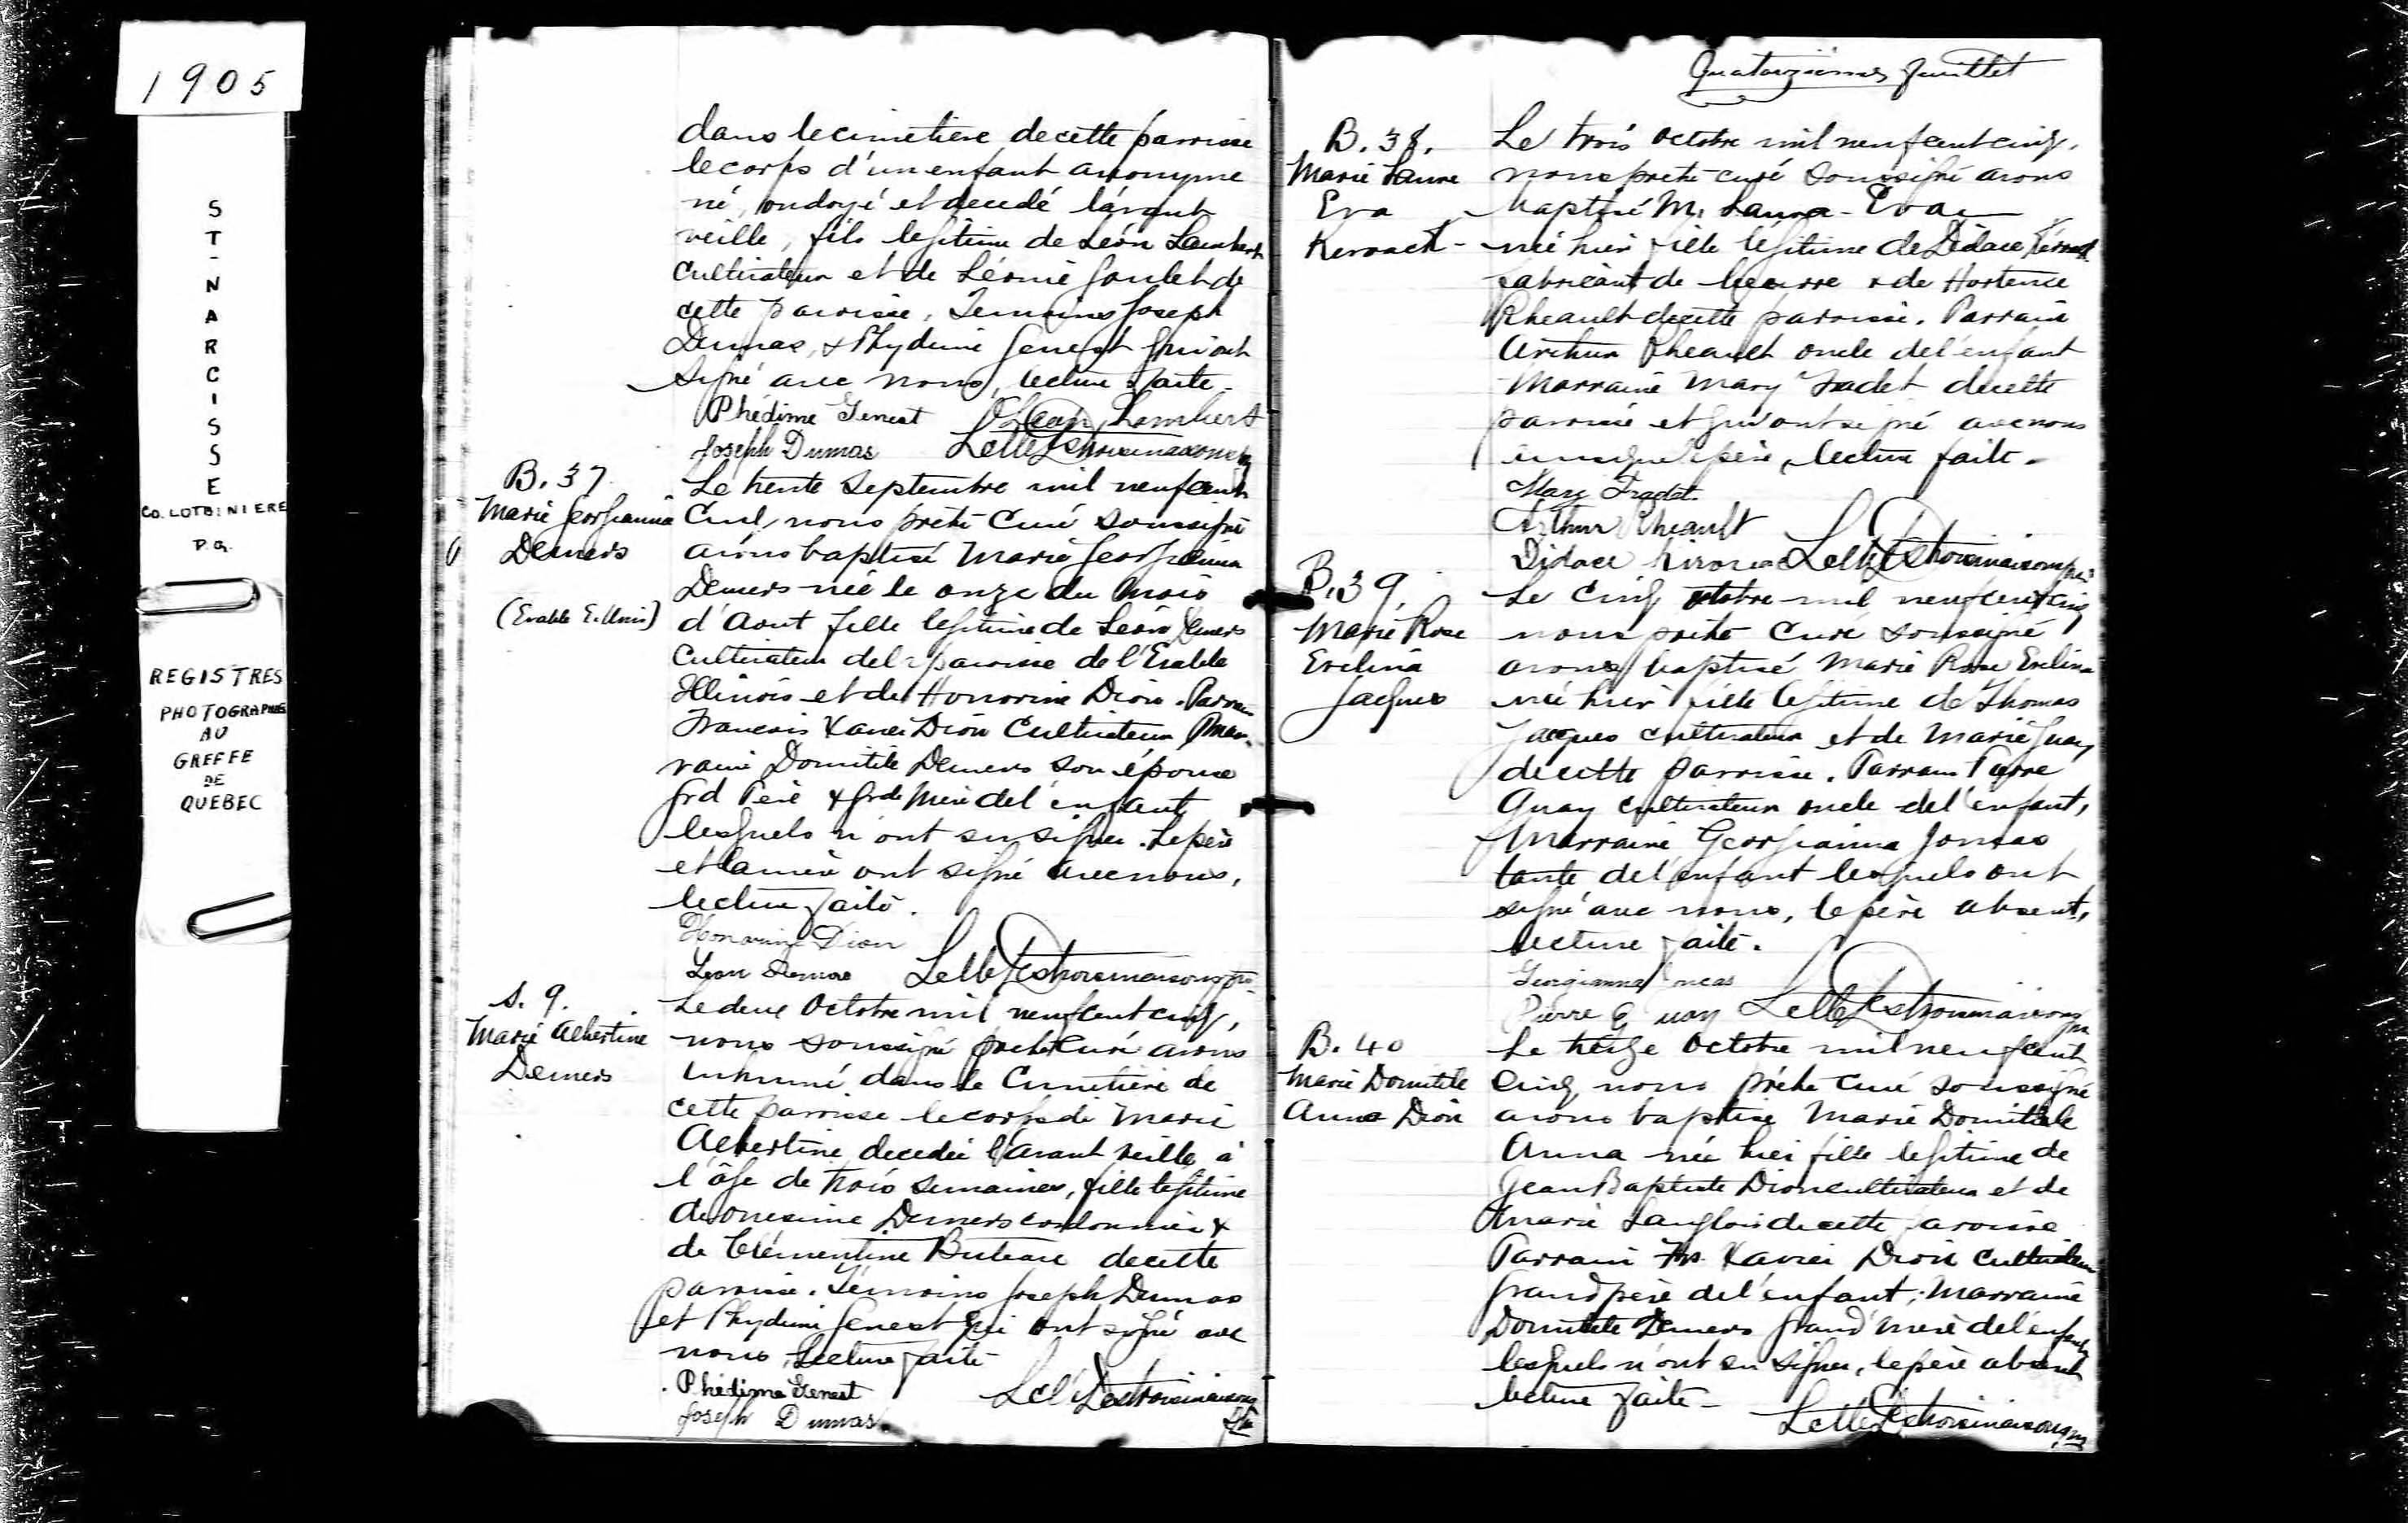 1905
ST-NARCISSE
CO. LOTBINIERE
P.Q.
REGISTRES
PHOTOGRAPHIÉS
AU
GREFFE
DE
QUEBEC
dans le cimetiere de cette paroisse
le corps d'un enfant anonyme
né, ondoyé et decedé l'avant
veille, fils legitime de Léon Lambert
Cultivateur et de Léonie Goulet de
cette paroisse, Temoins Joseph
Dumas, & Phydime Genest qui ont
signé avec nous, lecture faite -
Phédime Genest Léon Lambert
Joseph Dumas
B. 37
Marie Georgianna
Demers
(Erable E. Unis)
Le trente Septembre mil neuf cent
Cinq, nous prêtre Curé soussigné
avons baptisé Marie Georgianna
Demers née le onze du mois
d'Aout fille legitime de Léon Demers
Cultivateur de la paroisse de l'Erable
Illinois et de Honorine Dion. Parrain
Francois Xavier Dion Cultivateur Mar-
raine Domitile Demers son épouse
grd Père & grde Mère de l'enfant
lesquels n'ont su signer. Le père
et la mère ont signé avec nous,
lecture faite.
Honorine Dion
Léon Demers
S. 9.
Marie Albertine
Demers
Le deux Octobre mil neuf cent cinq,
nous soussigné prêtre Curé avons
inhumé dans le Cimetière de
cette paroisse le corps de Marie
Albertine decedée l'avant veille à
l'âge de trois semaines, fille legitime
de Onesime Demers cordonnier &
de Clémentine Buteau de cette
paroisse. Témoins Joseph Dumas
et Phydime Genest qui ont signé avec
nous, Lecture faite -
Phédime Genest
Joseph Dumas
Quatorzième feuillet
B. 38.
Marie Laura
Eva
Kerouack -
Le trois Octobre mil neuf cent cinq,
nous prêtre curé soussigné avons
baptisé M. Laura - Eva
née hier fille légitime de Didace
fabricant de beurre & de Hortence
Rheault de cette paroisse. Parrain
Arthur Rheault oncle de l'enfant
Marraine Mary Tradet de cette
paroisse et qui ont signé avec nous
ainsi que le père, lecture faite -
Mary Tradet.
Arthur Rheault
Didace
B. 39.
Marie Rose
Evelina
Jacques
Le Cinq octobre mil neuf cent cinq
nous prêtre Curé soussigné
avons baptisé Marie Rose Evelina
née hier fille legitime de Thomas
Jacques cultivateur et de Marie Guay
de cette paroisse. Parrain Pierre
Guay cultivateur oncle de l'enfant,
Marraine Georgianna Joncas
tante de l'enfant lesquels ont
signé avec nous, le père absent,
lecture faite.
Georgianna Joncas
Pierre Guay
B. 40
Marie Domitile
Anna Dion
Le treize Octobre mil neuf cent
Cinq, nous prêtre curé soussigné
avons baptisé Marie Domitile
Anna née hier fille legitime de
Jean Baptiste Dion cultivateur et de
Marie Langlois de cette paroisse
Parrain Frs. Xavier Dion Cultivateur
grand père de l'enfant; Marraine
Domitile Demers grand'mère de l'enfant
lesquels n'ont su signer, le père absent
lecture faite -